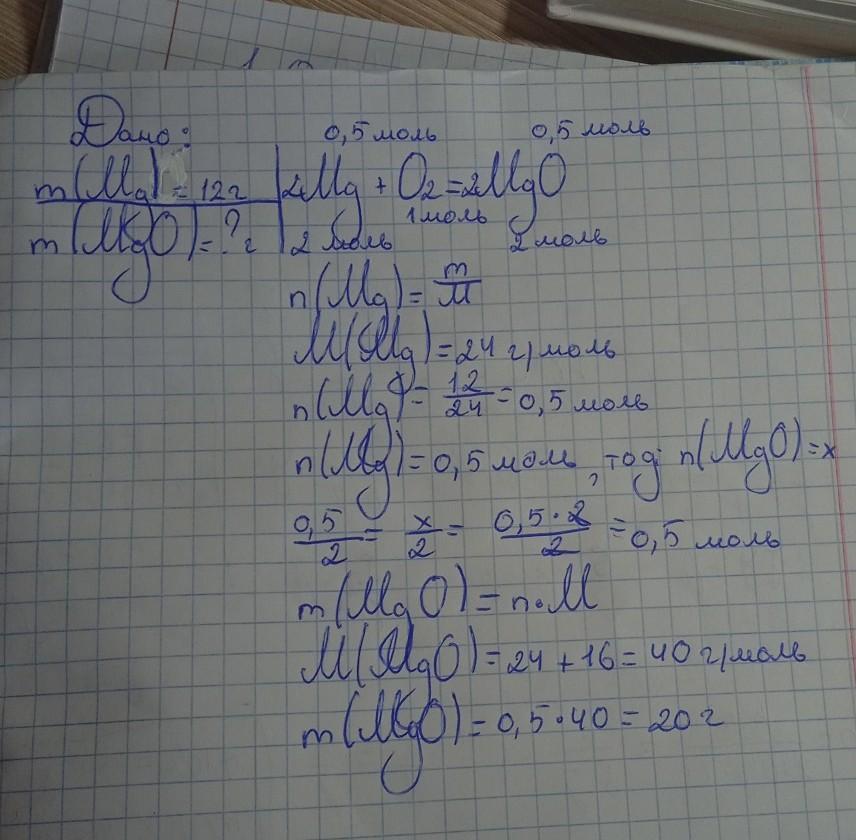 Дано:
0,5 моль 0,5 моль
m(Mg) = 12 г 2Mg + O₂ = 2MgO
1 моль
m(MgO) = ? г 2 моль 2 моль
n(Mg) = m/M
M(Mg) = 24 г/моль
n(Mg) = 12/24 = 0,5 моль
n(Mg) = 0,5 моль, тоді n(MgO) = x
0,5/2 = x/2 = 0,5·2/2 = 0,5 моль
m(MgO) = n·M
M(MgO) = 24 + 16 = 40 г/моль
m(MgO) = 0,5·40 = 20 г